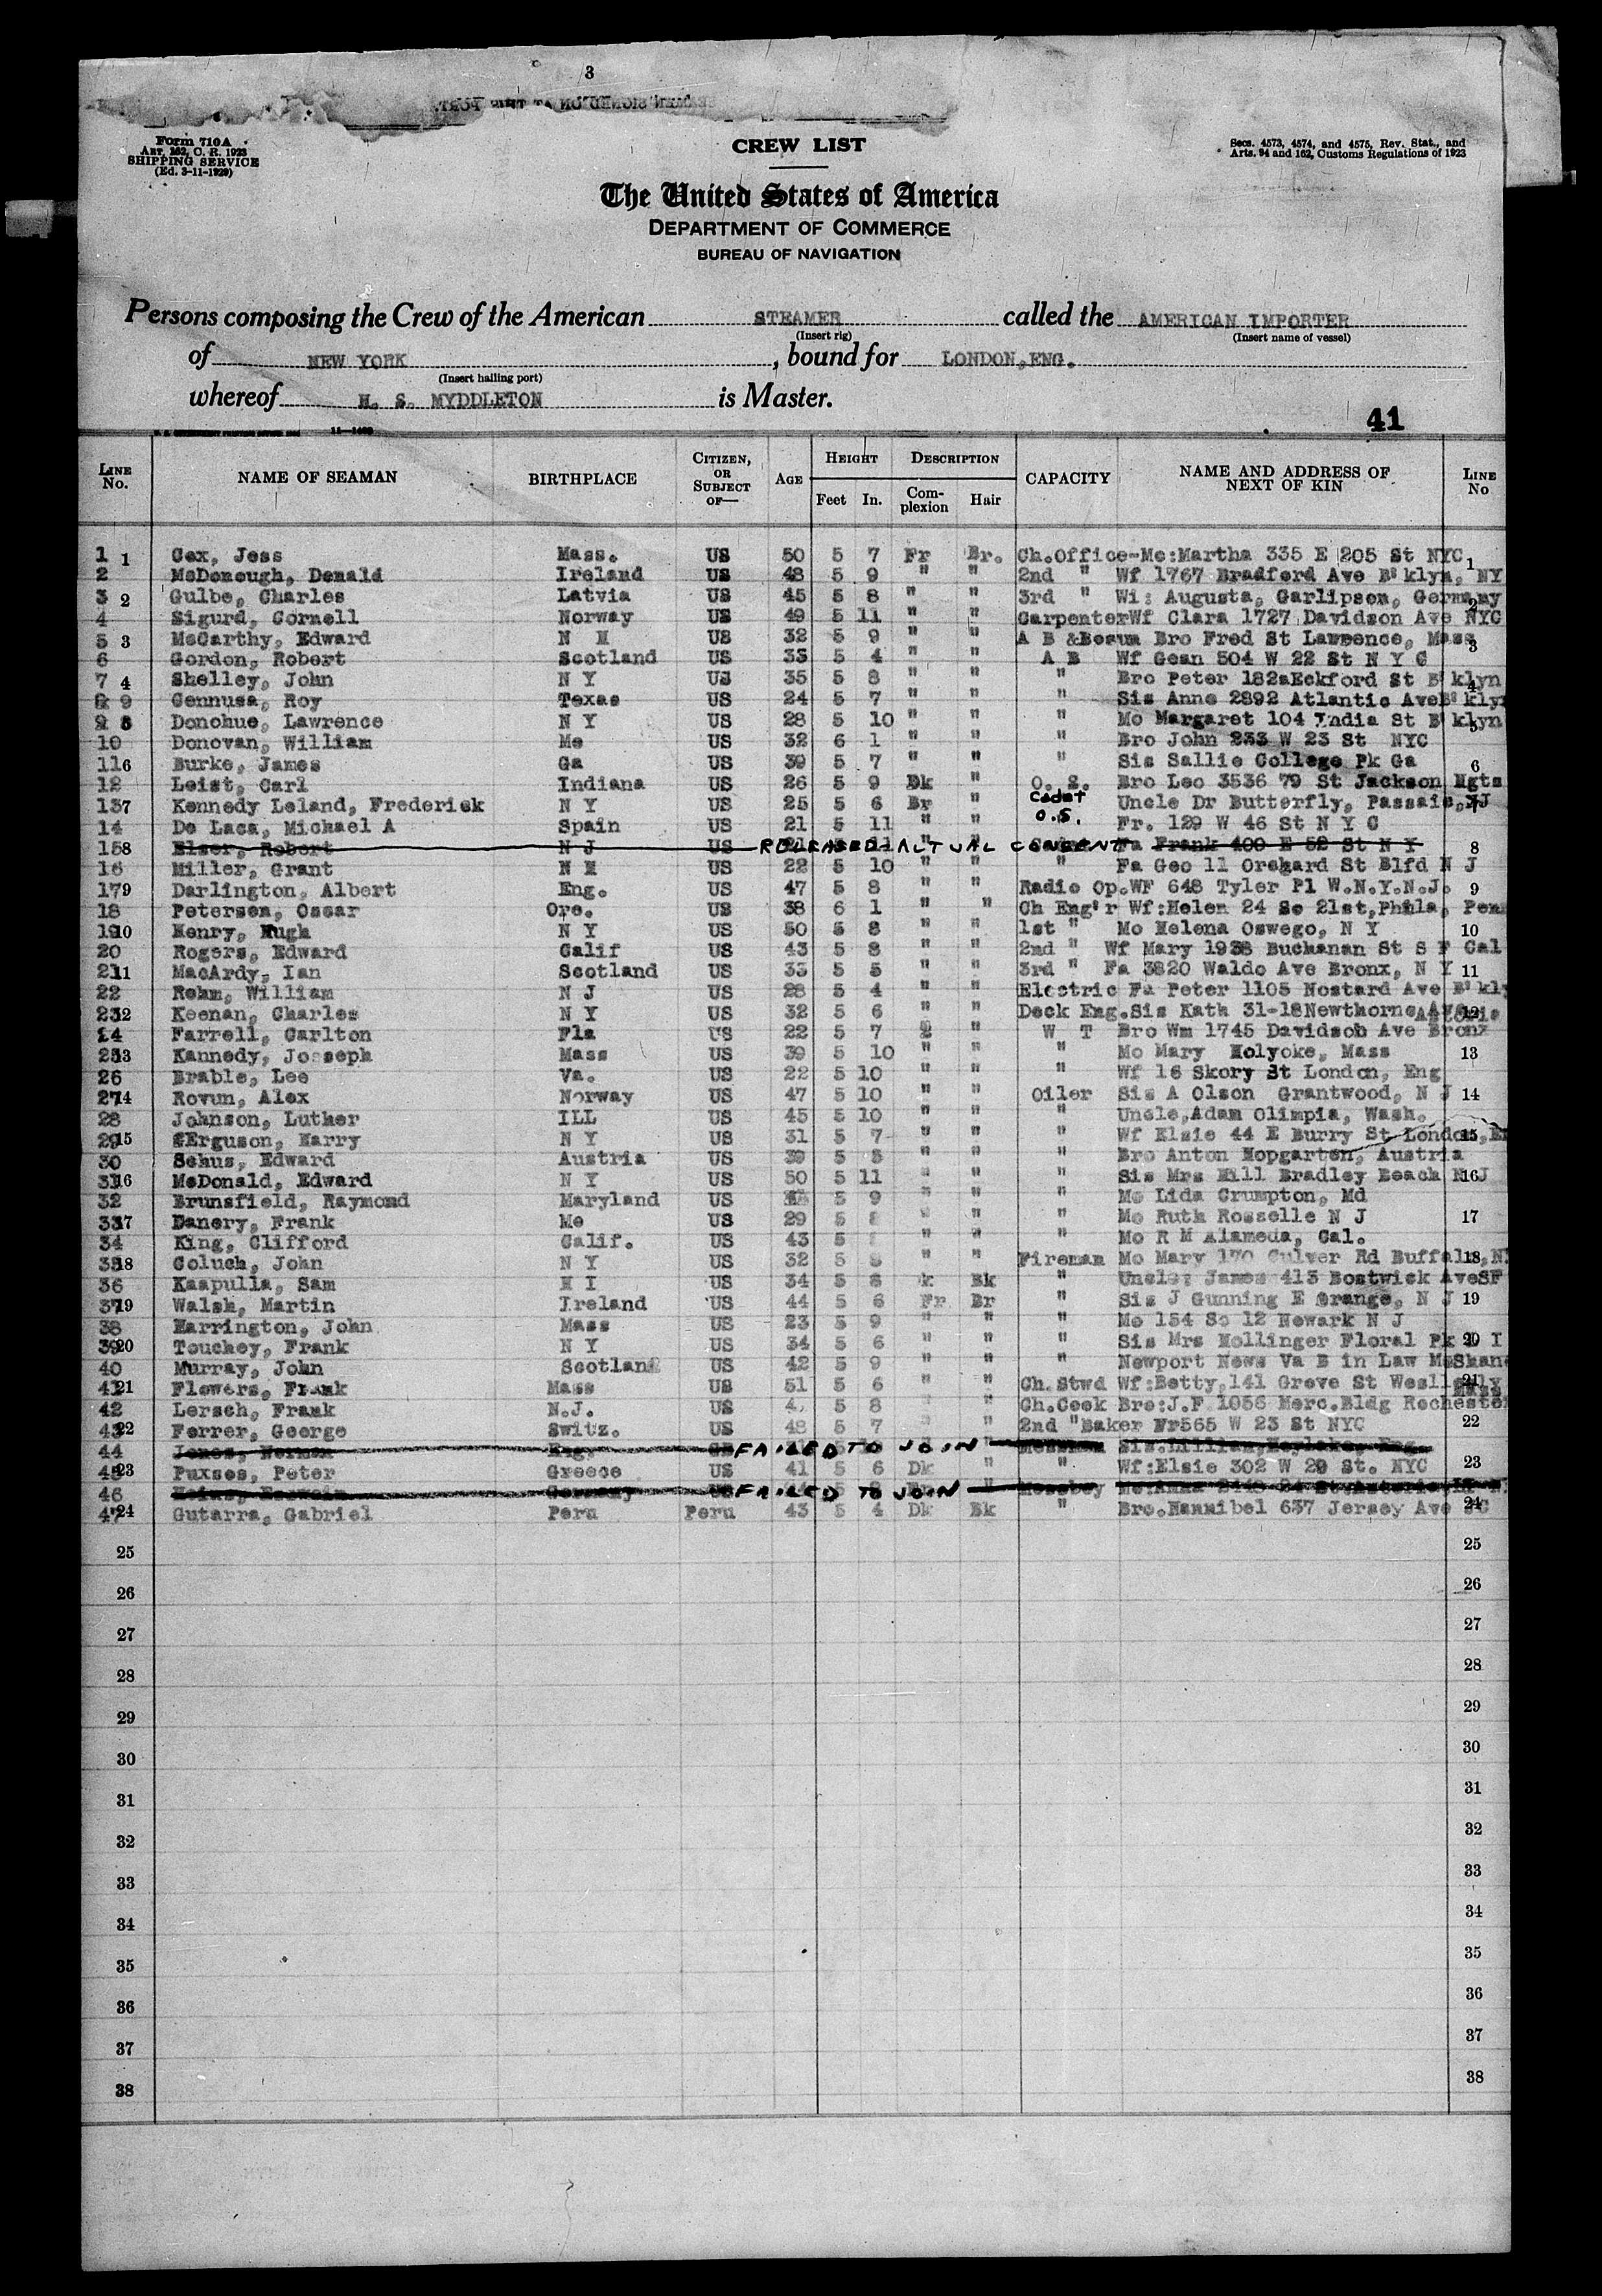 3
Form 710A
ART. 162, C. R. 1923
SHIPPING SERVICE
(Ed. 3-11-1929)
CREW LIST
Secs. 4573, 4574, and 4575, Rev. Stat., and
Arts. 94 and 162, Customs Regulations of 1923
The United States of America
DEPARTMENT OF COMMERCE
BUREAU OF NAVIGATION
Persons composing the Crew of the American STEAMER called the AMERICAN IMPORTER
(Insert rig) (Insert name of vessel)
of NEW YORK, bound for LONDON, ENG.
(Insert hailing port)
whereof H. S. MYDDLETON is Master.
41
LINE No. NAME OF SEAMAN BIRTHPLACE CITIZEN, OR SUBJECT OF— AGE HEIGHT Feet In. DESCRIPTION Complexion Hair CAPACITY NAME AND ADDRESS OF NEXT OF KIN LINE No
1 1 Cox, Jess Mass. US 50 5 7 Fr Br. Ch.Office-Mo:Martha 335 E 205 St NYC 1
2 McDonough, Donald Ireland US 48 5 9 " " 2nd " Wf 1767 Bradford Ave B'klyn, NY
3 2 Gulbe, Charles Latvia US 45 5 8 " " 3rd " Wi: Augusta, Garlipson, Germany 2
4 Sigurd, Cornell Norway US 49 5 11 " " Carpenter Wf Clara 1727 Davidson Ave NYC
5 3 McCarthy, Edward N H US 32 5 9 " " A B &Bosun Bro Fred St Lawrence, Mass 3
6 Gordon, Robert Scotland US 33 5 4 " " A B Wf Gean 504 W 22 St N Y C
7 4 Shelley, John N Y US 35 5 8 " " " Bro Peter 182aEckford St B'klyn 4
8 9 Gennusa, Roy Texas US 24 5 7 " " " Sis Anne 2892 Atlantic AveB'klyn
9 5 Donohue, Lawrence N Y US 28 5 10 " " " Mo Margaret 104 India St B'klyn 5
10 Donovan, William Me US 32 6 1 " " " Bro John 233 W 23 St NYC
11 6 Burke, James Ga US 39 5 7 " " " Sis Sallie College Pk Ga 6
12 Leist, Carl Indiana US 26 5 9 Dk " O. S. Bro Leo 3536 79 St Jackson Hgts
13 7 Kennedy Leland, Frederick N Y US 25 5 6 Br " Cadet Uncle Dr Butterfly, Passaic, NJ 7
14 De Laca, Michael A Spain US 21 5 11 " " O.S. Fr. 129 W 46 St N Y C
15 8 Elser, Robert N J US RELEASED MUTUAL CONSENT Fa Frank 400 E 52 St N Y 8
16 Miller, Grant N H US 22 5 10 " " " Fa Geo 11 Orchard St Blfd N J
17 9 Darlington, Albert Eng. US 47 5 8 " " Radio Op.WF 648 Tyler Pl W.N.Y.N.J. 9
18 Petersen, Oscar Ore. US 38 6 1 " " Ch Eng'r Wf:Helen 24 So 21st,Phila, Penn
19 10 Henry, Hugh N Y US 50 5 8 " " 1st " Mo Helena Oswego, N Y 10
20 Rogers, Edward Calif US 43 5 8 " " 2nd " Wf Mary 1938 Buchanan St S F Cal
21 11 MacArdy, Ian Scotland US 33 5 5 " " 3rd " Fa 3820 Waldo Ave Bronx, N Y 11
22 Rehm, William N J US 28 5 4 " " Electric Fa Peter 1105 Nostard Ave B'kly
23 12 Keenan, Charles N Y US 32 5 6 " " Deck Eng.Sis Kath 31-18Newthorne Ave Astoria 12
24 Farrell, Carlton Fla US 22 5 7 " " W T Bro Wm 1745 Davidson Ave Bronx
25 13 Kannedy, Josseph Mass US 39 5 10 " " " Mo Mary Holyoke, Mass 13
26 Brable, Lee Va. US 22 5 10 " " " Wf 16 Skory St London, Eng
27 14 Rovun, Alex Norway US 47 5 10 " " Oiler Sis A Olson Grantwood, N J 14
28 Johnson, Luther ILL US 45 5 10 " " " Uncle,Adam Olimpia, Wash.
29 15 Ferguson, Harry N Y US 31 5 7 " " " Wf Elsie 44 E Burry St London,En 15
30 Schus, Edward Austria US 39 5 5 " " " Bro Anton Hopgarten, Austria
31 16 McDonald, Edward N Y US 50 5 11 " " " Sis Mrs Hill Bradley Beach N J 16
32 Brunsfield, Raymond Maryland US 5 9 " " " Mo Lida Crumpton, Md
33 17 Danery, Frank Me US 29 5 8 " " " Mo Ruth Rosselle N J 17
34 King, Clifford Calif. US 43 5 " " " Mo R M Alameda, Cal.
35 18 Coluch, John N Y US 32 5 8 " " Fireman Mo Mary 170 Culver Rd Buffalo,N 18
36 Kaapulla, Sam H I US 34 5 8 k Bk " Uncle: James 413 Bostwick AveSF
37 19 Walsh, Martin Ireland US 44 5 6 Fr Br " Sis J Gunning E Orange, N J 19
38 Harrington, John Mass US 23 5 9 " " " Mo 154 So 12 Newark N J
39 20 Touchey, Frank N Y US 34 5 6 " " " Sis Mrs Hollinger Floral Pk L I 20
40 Murray, John Scotland US 42 5 9 " " " Newport News Va B in Law McSkane
41 21 Flowers, Frank Mass US 51 5 6 " " Ch.Stwd Wf:Betty,141 Grove St Weslleyly Mass 21
42 Lersch, Frank N.J. US 5 8 " " Ch.Cook Bro:J.F 1056 Merc.Bldg Rochester
43 22 Ferrer, George Switz. US 48 5 7 " " 2nd "Baker Fr565 W 23 St NYC 22
44 Jones, Norman Eng. FAILED TO JOIN Messman Sis.Lillian, Eng.
45 23 Puxses, Peter Greece US 41 5 6 Dk " " Wf:Elsie 302 W 29 St. NYC 23
46 Germany FAILED TO JOIN Messboy
47 24 Gutarra, Gabriel Peru Peru 43 5 4 Dk Bk " Bro.Hannibel 637 Jersey Ave JC 24
25 25
26 26
27 27
28 28
29 29
30 30
31 31
32 32
33 33
34 34
35 35
36 36
37 37
38 38